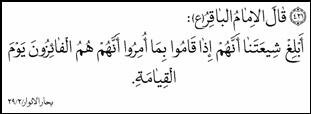 ﴿٤٣١﴾ قَالَ الْاِمَامُ الْبَاقِرُ(ع):
أَبْلِغْ شِيعَتَنَا أَنَّهُمْ إِذَا قَامُوا بِمَا أُمِرُوا أَنَّهُمْ هُمُ الْفَائِزُونَ يَوْمَ
الْقِيَامَةِ.
بحار الانوار ٢٩/٢